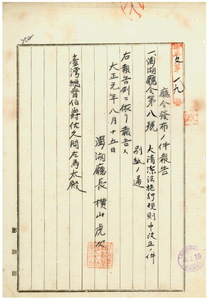 廳令發布ノ件報告
一、澎湖廳令第八號 大清潔法施行規則中改正ノ件
別紙ノ通
右報告例ニ依リ報告ス
大正元年八月十五日
澎湖廳長 橫山虎次
臺灣總督伯爵佐久間左馬太殿